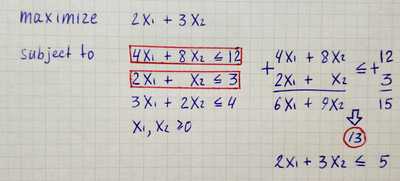 maximize 2x₁ + 3x₂
subject to 4x₁ + 8x₂ ≤ 12
2x₁ + x₂ ≤ 3
3x₁ + 2x₂ ≤ 4
x₁, x₂ ≥ 0
+ 4x₁ + 8x₂ ≤ + 12
2x₁ + x₂ 3
6x₁ + 9x₂ 15
⇓
1/3
2x₁ + 3x₂ ≤ 5